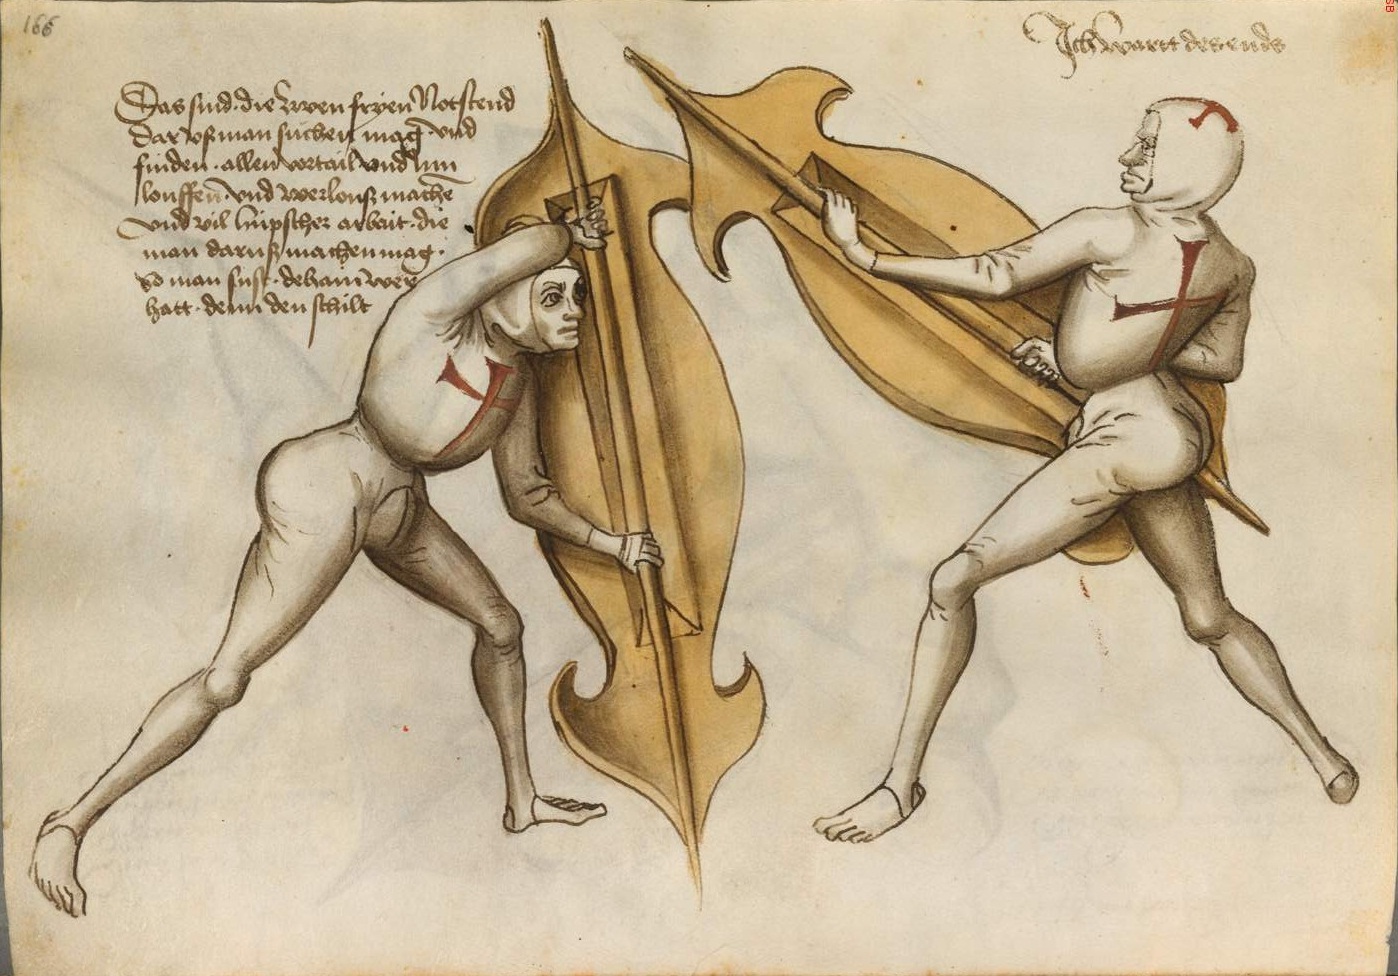 166
Ich wartt des ends
Das sind die zwen fryen Notstend
dar vß man süchen mag vnd
finden allen vortail vnd hin
louffen vnd werlouß mache
vnd vil hüpscher arbait die
man daruß machen mag
so man sust dehain wer
hatt denn den schilt